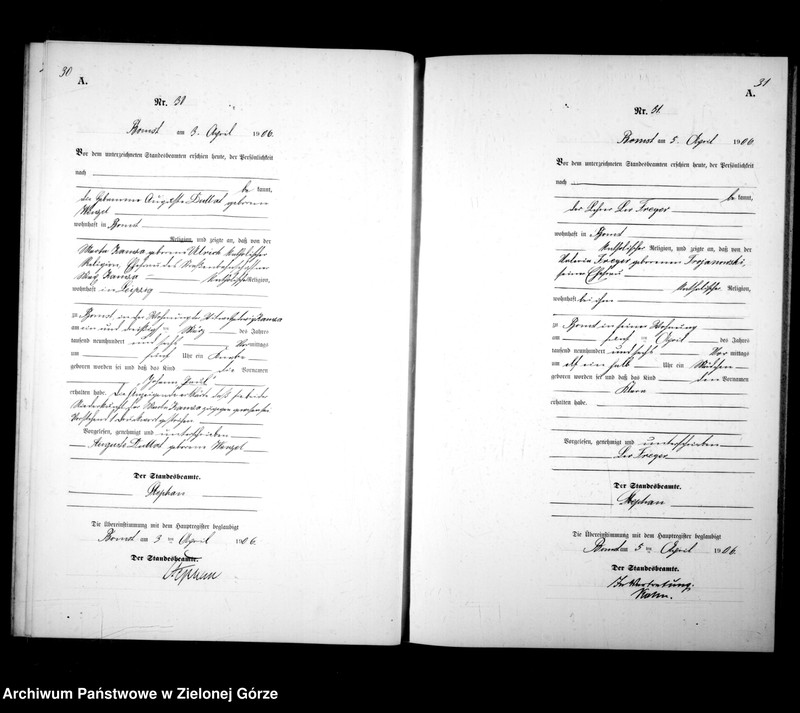 30
A.
Nr. 30
Bomst am 3. April 1906.
Vor dem unterzeichneten Standesbeamten erschien heute, der Persönlichkeit
nach
be kannt,
die Hebamme Auguste geborene
Wenzel
wohnhaft in Bomst
Religion, und zeigte an, daß von der
Marta geborene Ulrich katholischer
Religion, Ehefrau des
Max katholischer Religion,
wohnhaft in Leipzig
zu Bomst, in der Wohnung der
am ein und dreißig ten März des Jahres
tausend neunhundert und sechs Vor mittags
um fünf Uhr ein Knabe
geboren worden sei und daß das Kind die Vornamen
"Johann Paul"
erhalten habe. Die Anzeigende erklärte, daß sie bei der
Niederkunft der Marta zugegen gewesen sei
Vorstehend Druckwort gestrichen
Vorgelesen, genehmigt und unterschrieben
Auguste geborene Wenzel
Der Standesbeamte.
Stephan
Die Übereinstimmung mit dem Hauptregister beglaubigt
Bomst am 3 ten April 1906.
Der Standesbeamte.
Stephan
31
A.
Nr. 31.
Bomst am 5. April 1906.
Vor dem unterzeichneten Standesbeamten erschien heute, der Persönlichkeit
nach
be kannt,
der Lehrer Leo Freyer
wohnhaft in Bomst
katholischer Religion, und zeigte an, daß von der
Valeria Freyer geborenen Trojanowski,
seiner Ehefrau
katholischer Religion,
wohnhaft bei ihm
zu Bomst in seiner Wohnung
am ten April des Jahres
tausend neunhundert und sechs Vor mittags
um elf ein halb Uhr ein Mädchen
geboren worden sei und daß das Kind den Vornamen
Klara
erhalten habe.
Vorgelesen, genehmigt und unterschrieben
Leo Freyer
Der Standesbeamte.
Stephan
Die Übereinstimmung mit dem Hauptregister beglaubigt
Bomst am 5 ten April 1906.
Der Standesbeamte.
In Vertretung.
Archiwum Państwowe w Zielonej Górze